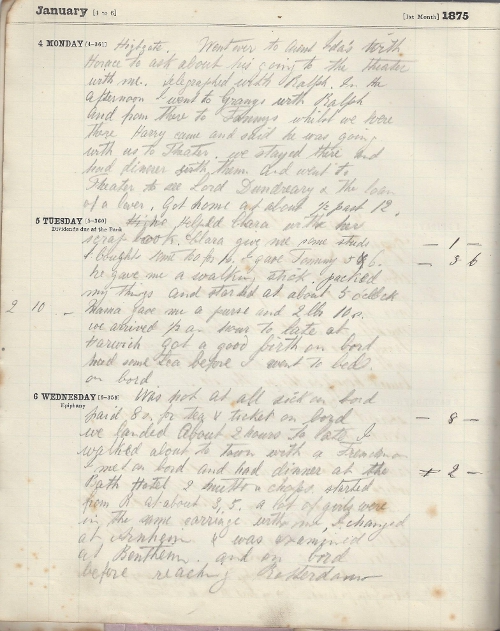 January [4 to 6] [1st Month] 1875
4 MONDAY [4-361] Highgate. Went over to Aunt Ida's with
Horace to ask about his going to the theater
with me. telegraphed with Ralph. In the
afternoon I went to Grangs with Ralph
and from there to Tommys whilst we were
there Harry came and said he was going
with us to Theater. we stayed there and
had dinner with them and went to
Theater to see Lord Dundreary & the loan
of a lover. Got home at about ½ past 12.
5 TUESDAY [5-360] Highg. Helped Clara with her
Dividends due at the Bank
scrap book. Clara give me some studs
I bought that to for 1s. I gave Tommy 3s 6. — 1 —
he gave me a walking stick. packed — 3 6
my things and started at about 5 o'clock
2 10 — Mama gave me a purse and 2 lbs 10s.
we arrived ½ an hour to late at
Harwich got a good birth on bord
had some tea before I went to bed
on bord
6 WEDNESDAY [6-359] Was not at all sick on bord
Epiphany
paid 8s. for tea & ticket on bord — 8 —
we landed about 2 hours to late I
walked about to town with a Frenchman
I met on bord and had dinner at the
Bath Hotel 2 mutton chops. started + 2 —
from R. at about 3,5. a lot of girls were
in the same carriage with me, I changed
at Arnhem & was examined
at Bentheim. and on bord
before reaching Rotterdam